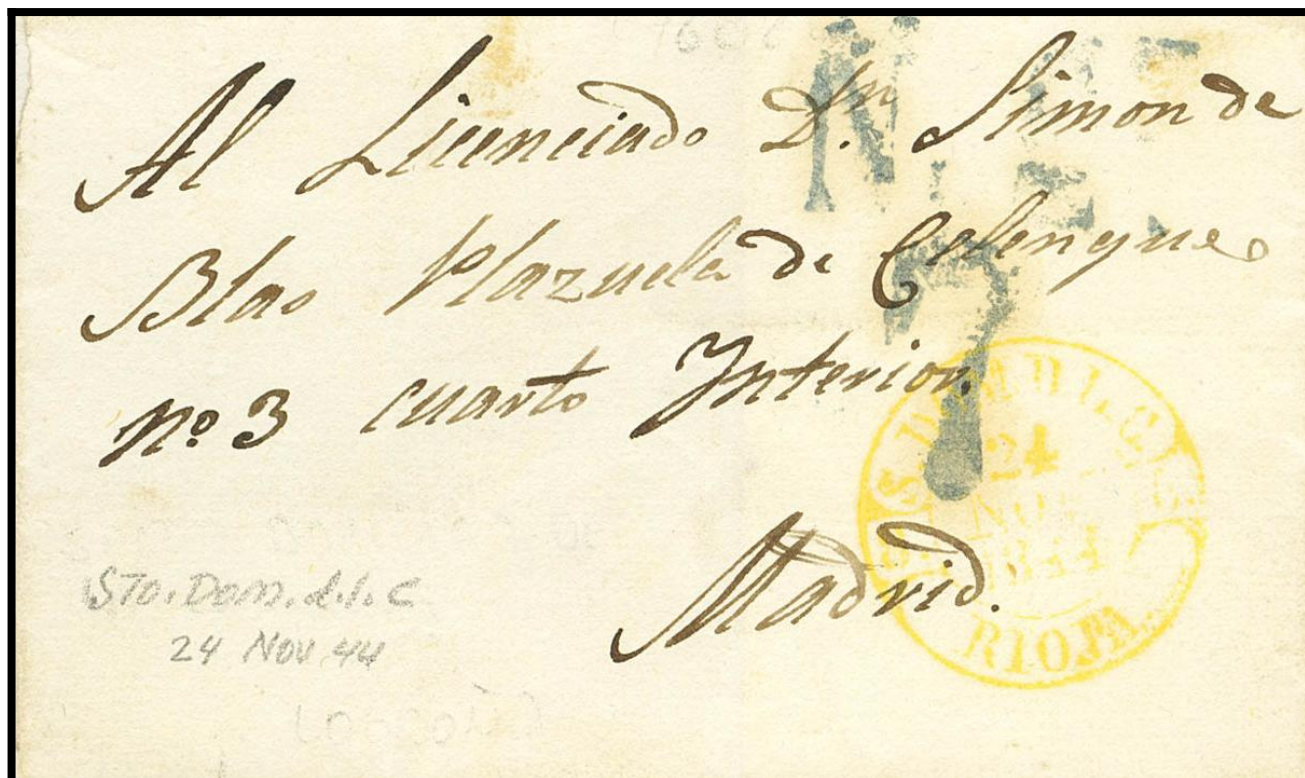 Al Licenciado Dn. Simon de
Blas Plazuela de Celenque
nº 3 cuarto Interior.
Madrid.
24
NOV
1844
RIOJA.
STO. DOM. d.l.C
24 NOV 44